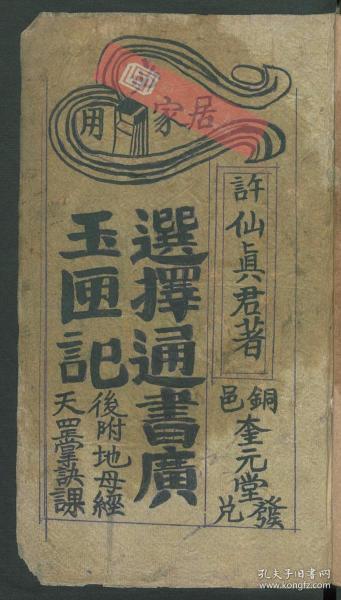 居家必用
許仙真君著
銅邑奎元堂發兌
選擇通書廣
玉匣記
後附地母經
天罡掌訣課
孔夫子旧书网